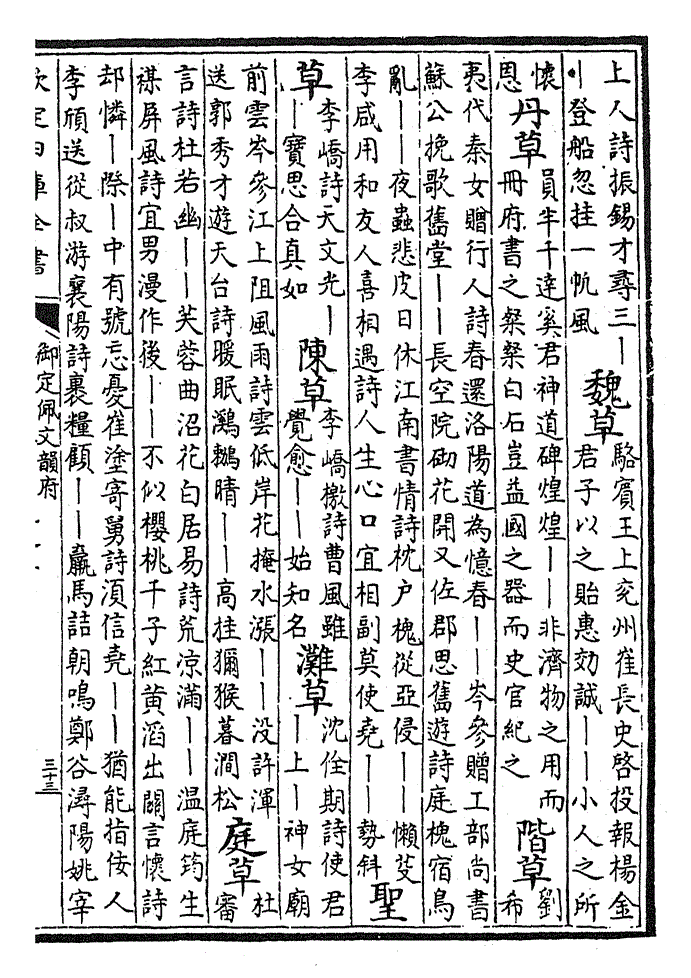 上人詩振錫才尋三丨
丨登船忽挂一帆風
魏草
駱賓王上兖州崔長史啓投報楊金
君子以之貽惠効誠丨丨小人之所
懷
恩
丹草
員半千達奚君神道碑煌煌丨丨非濟物之用而
冊府書之粲粲白石豈益國之器而史官紀之
階草
劉
希
夷代秦女贈行人詩春還洛陽道為憶春丨丨岑參贈工部尚書
蘇公挽歌舊堂丨丨長空院砌花開又佐郡思舊遊詩庭槐宿鳥
亂丨丨夜蟲悲皮日休江南書情詩枕户槐從亞侵丨丨懶芟
李咸用和友人喜相遇詩人生心口宜相副莫使堯丨丨勢斜
聖
草
李嶠詩天文光丨
丨寶思合真如
陳草
李嶠檄詩曹風雖
覺愈丨丨始知名
灘草
沈佺期詩使君
丨上丨神女廟
前雲岑參江上阻風雨詩雲低岸花掩水漲丨丨没許渾
送郭秀才遊天台詩暖眠鸂鶒晴丨丨高挂獼猴暮澗松
庭草
杜
審
言詩杜若幽丨丨芙蓉曲沼花白居易詩荒凉滿丨丨温庭筠生
禖屏風詩宜男漫作後丨丨不似櫻桃千子紅黄滔出關言懷詩
却憐丨際丨中有號忘憂崔塗寄舅詩須信堯丨丨猶能指佞人
李頎送從叔游襄陽詩裹糧顧丨丨羸馬詰朝鳴鄭谷潯陽姚宰
欽定四庫全書
御定佩文韻府
三十三